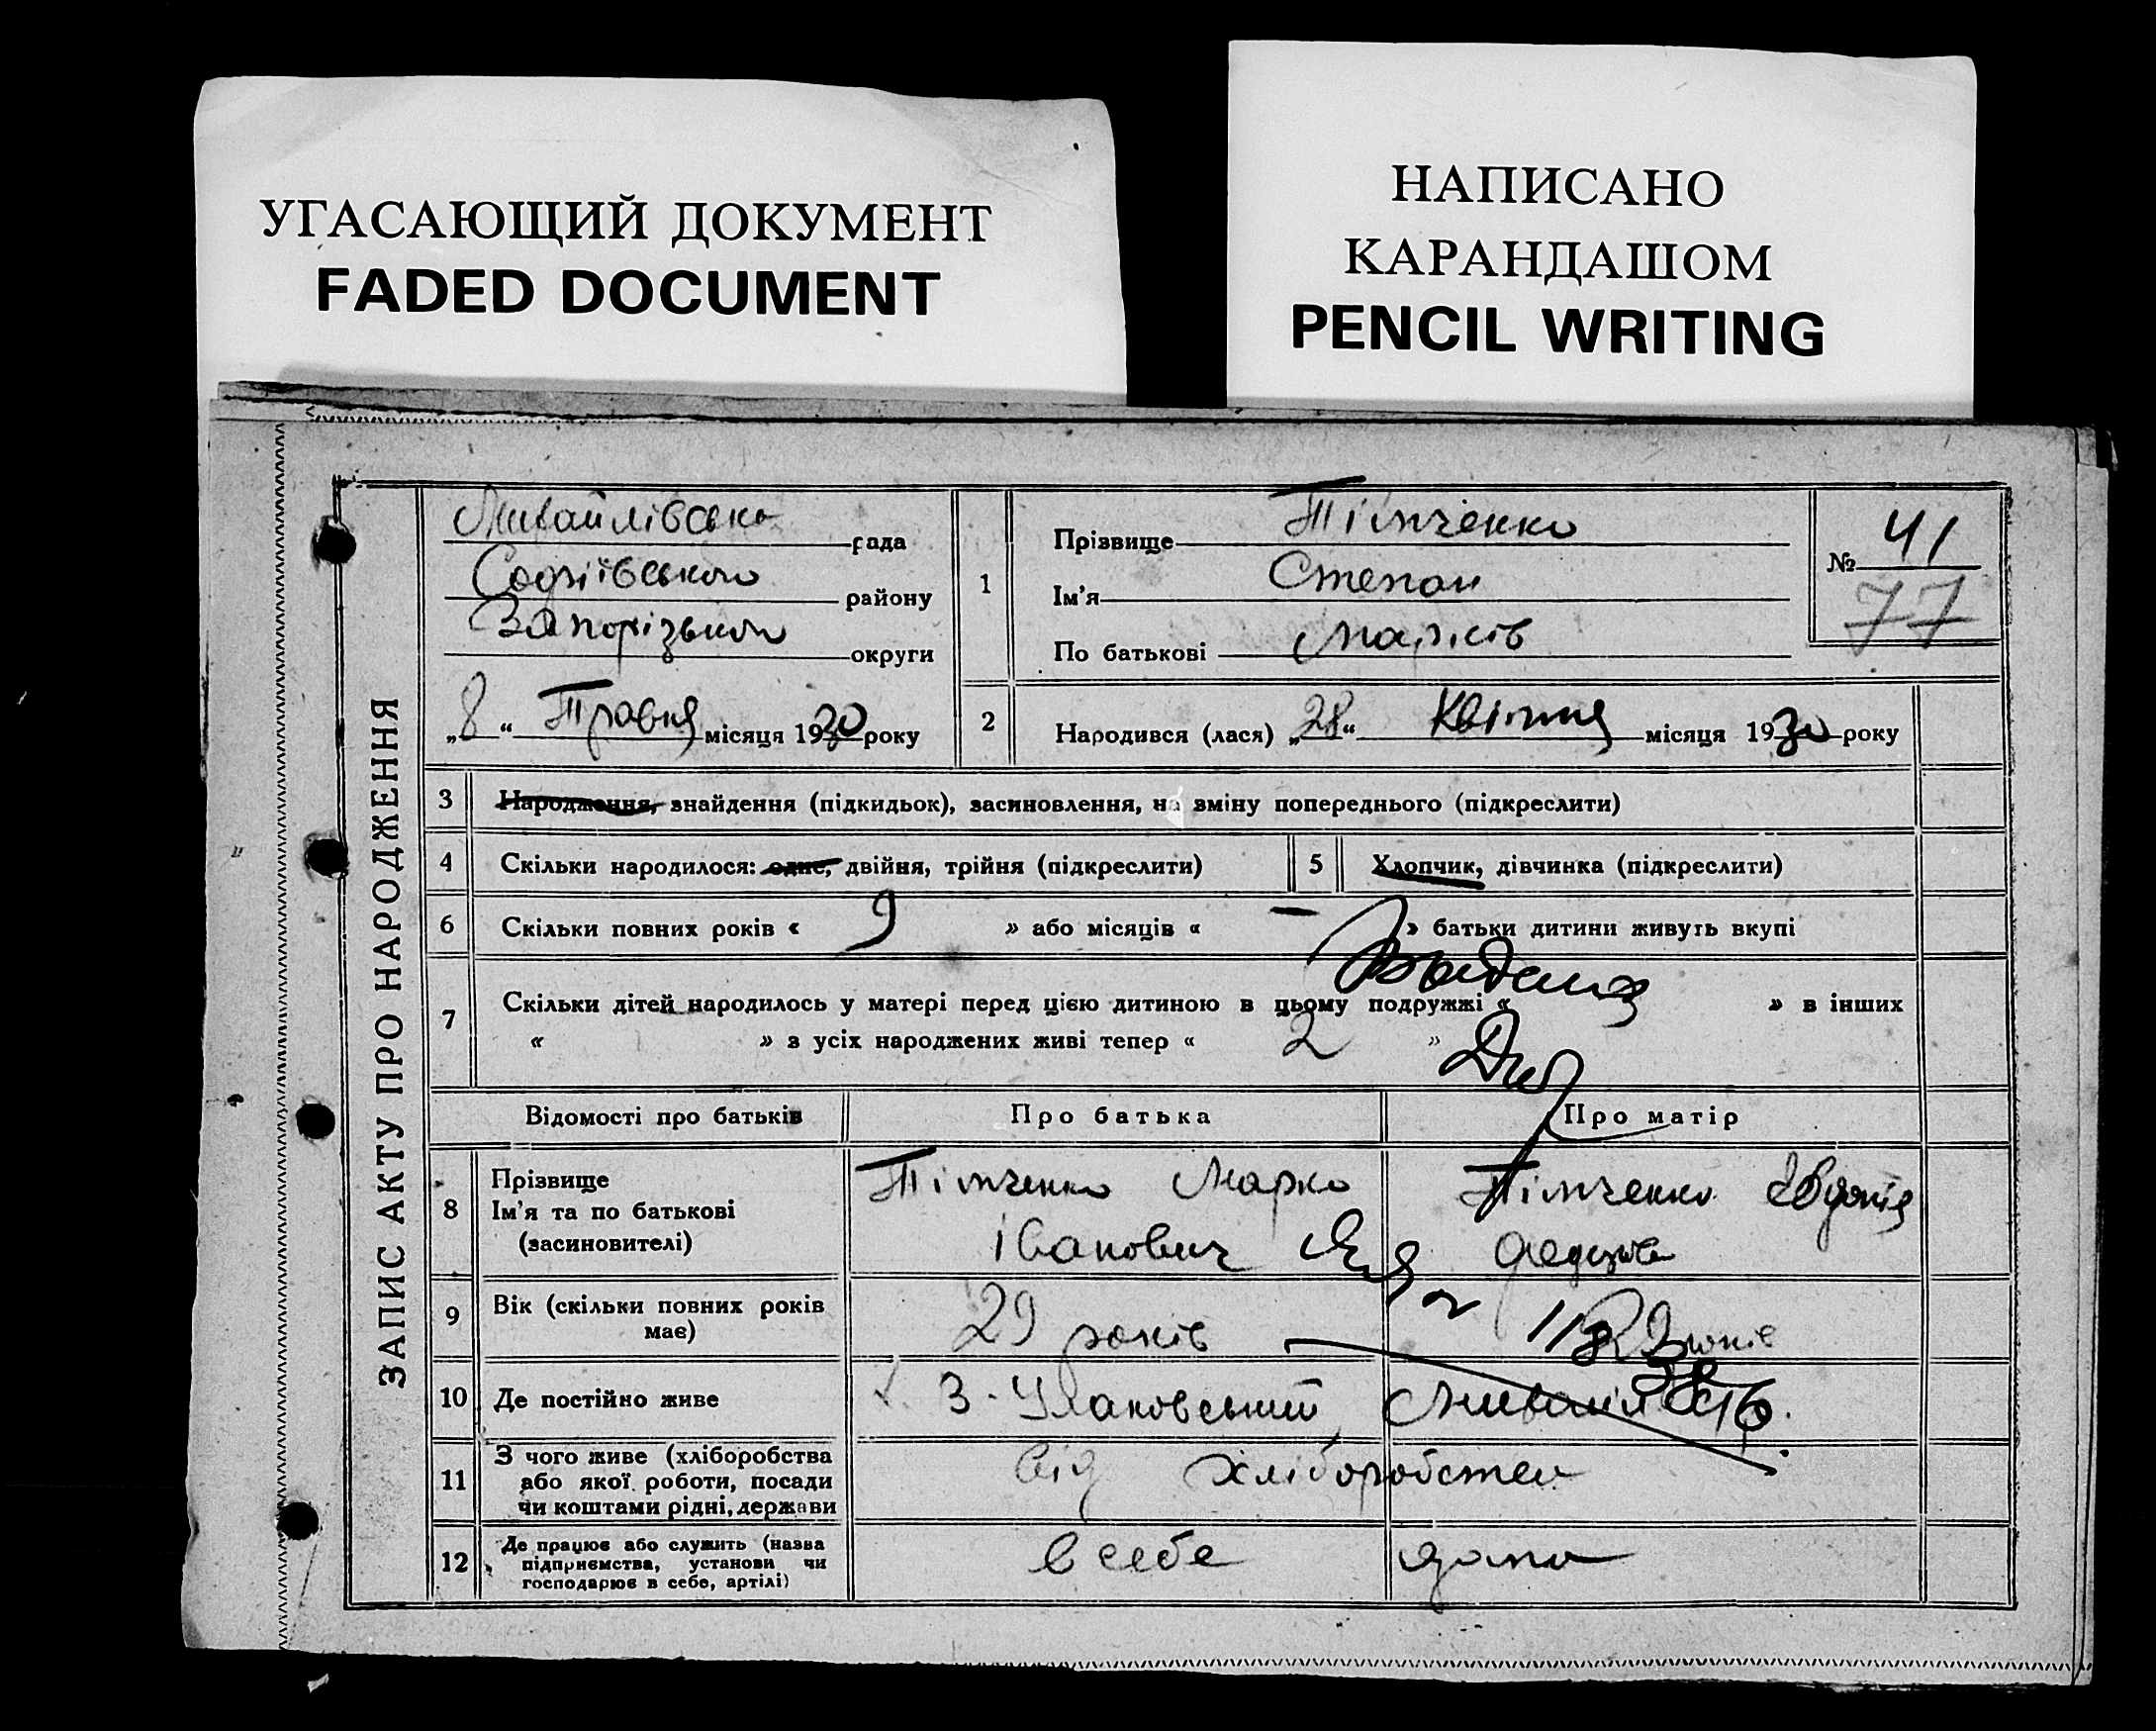 УГАСАЮЩИЙ ДОКУМЕНТ
FADED DOCUMENT
НАПИСАНО
КАРАНДАШОМ
PENCIL WRITING
ЗАПИС АКТУ ПРО НАРОДЖЕННЯ
Михайлівська рада
Софіївського району
Запорізької округи
„8“ Травня місяця 1930 року
1
Прізвище Тімченко
Ім'я Степан
По батькові Марків
№ 41
77
2 Народився (лася) „28“ Квітня місяця 1930 року
3 Народження, знайдення (підкидьок), засиновлення, на зміну попереднього (підкреслити)
4 Скільки народилося: одне, двійня, трійня (підкреслити)
5 Хлопчик, дівчинка (підкреслити)
6 Скільки повних років « 9 » або місяців « – » батьки дитини живуть вкупі
7 Скільки дітей народилось у матері перед цією дитиною в цьому подружжі « » в інших
« » з усіх народжених живі тепер « 2 »
Відомості про батьків Про батька Про матір
8 Прізвище
Ім'я та по батькові
(засиновителі)
Тімченко Марко
Іванович
Тімченко Євдокія
9 Вік (скільки повних років
має)
29 років
10 Де постійно живе
11 З чого живе (хліборобства
або якої роботи, посади
чи коштами рідні, держави
від хліборобства
12 Де працює або служить (назва
підприємства, установи чи
господарює в себе, артілі)
в себе дома